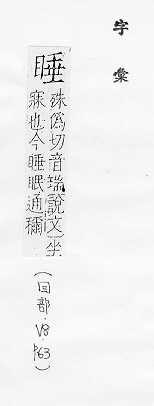 字彙
睡
殊偽切音瑞說文坐
寐也今睡眠通稱
(目部·V8·P63)